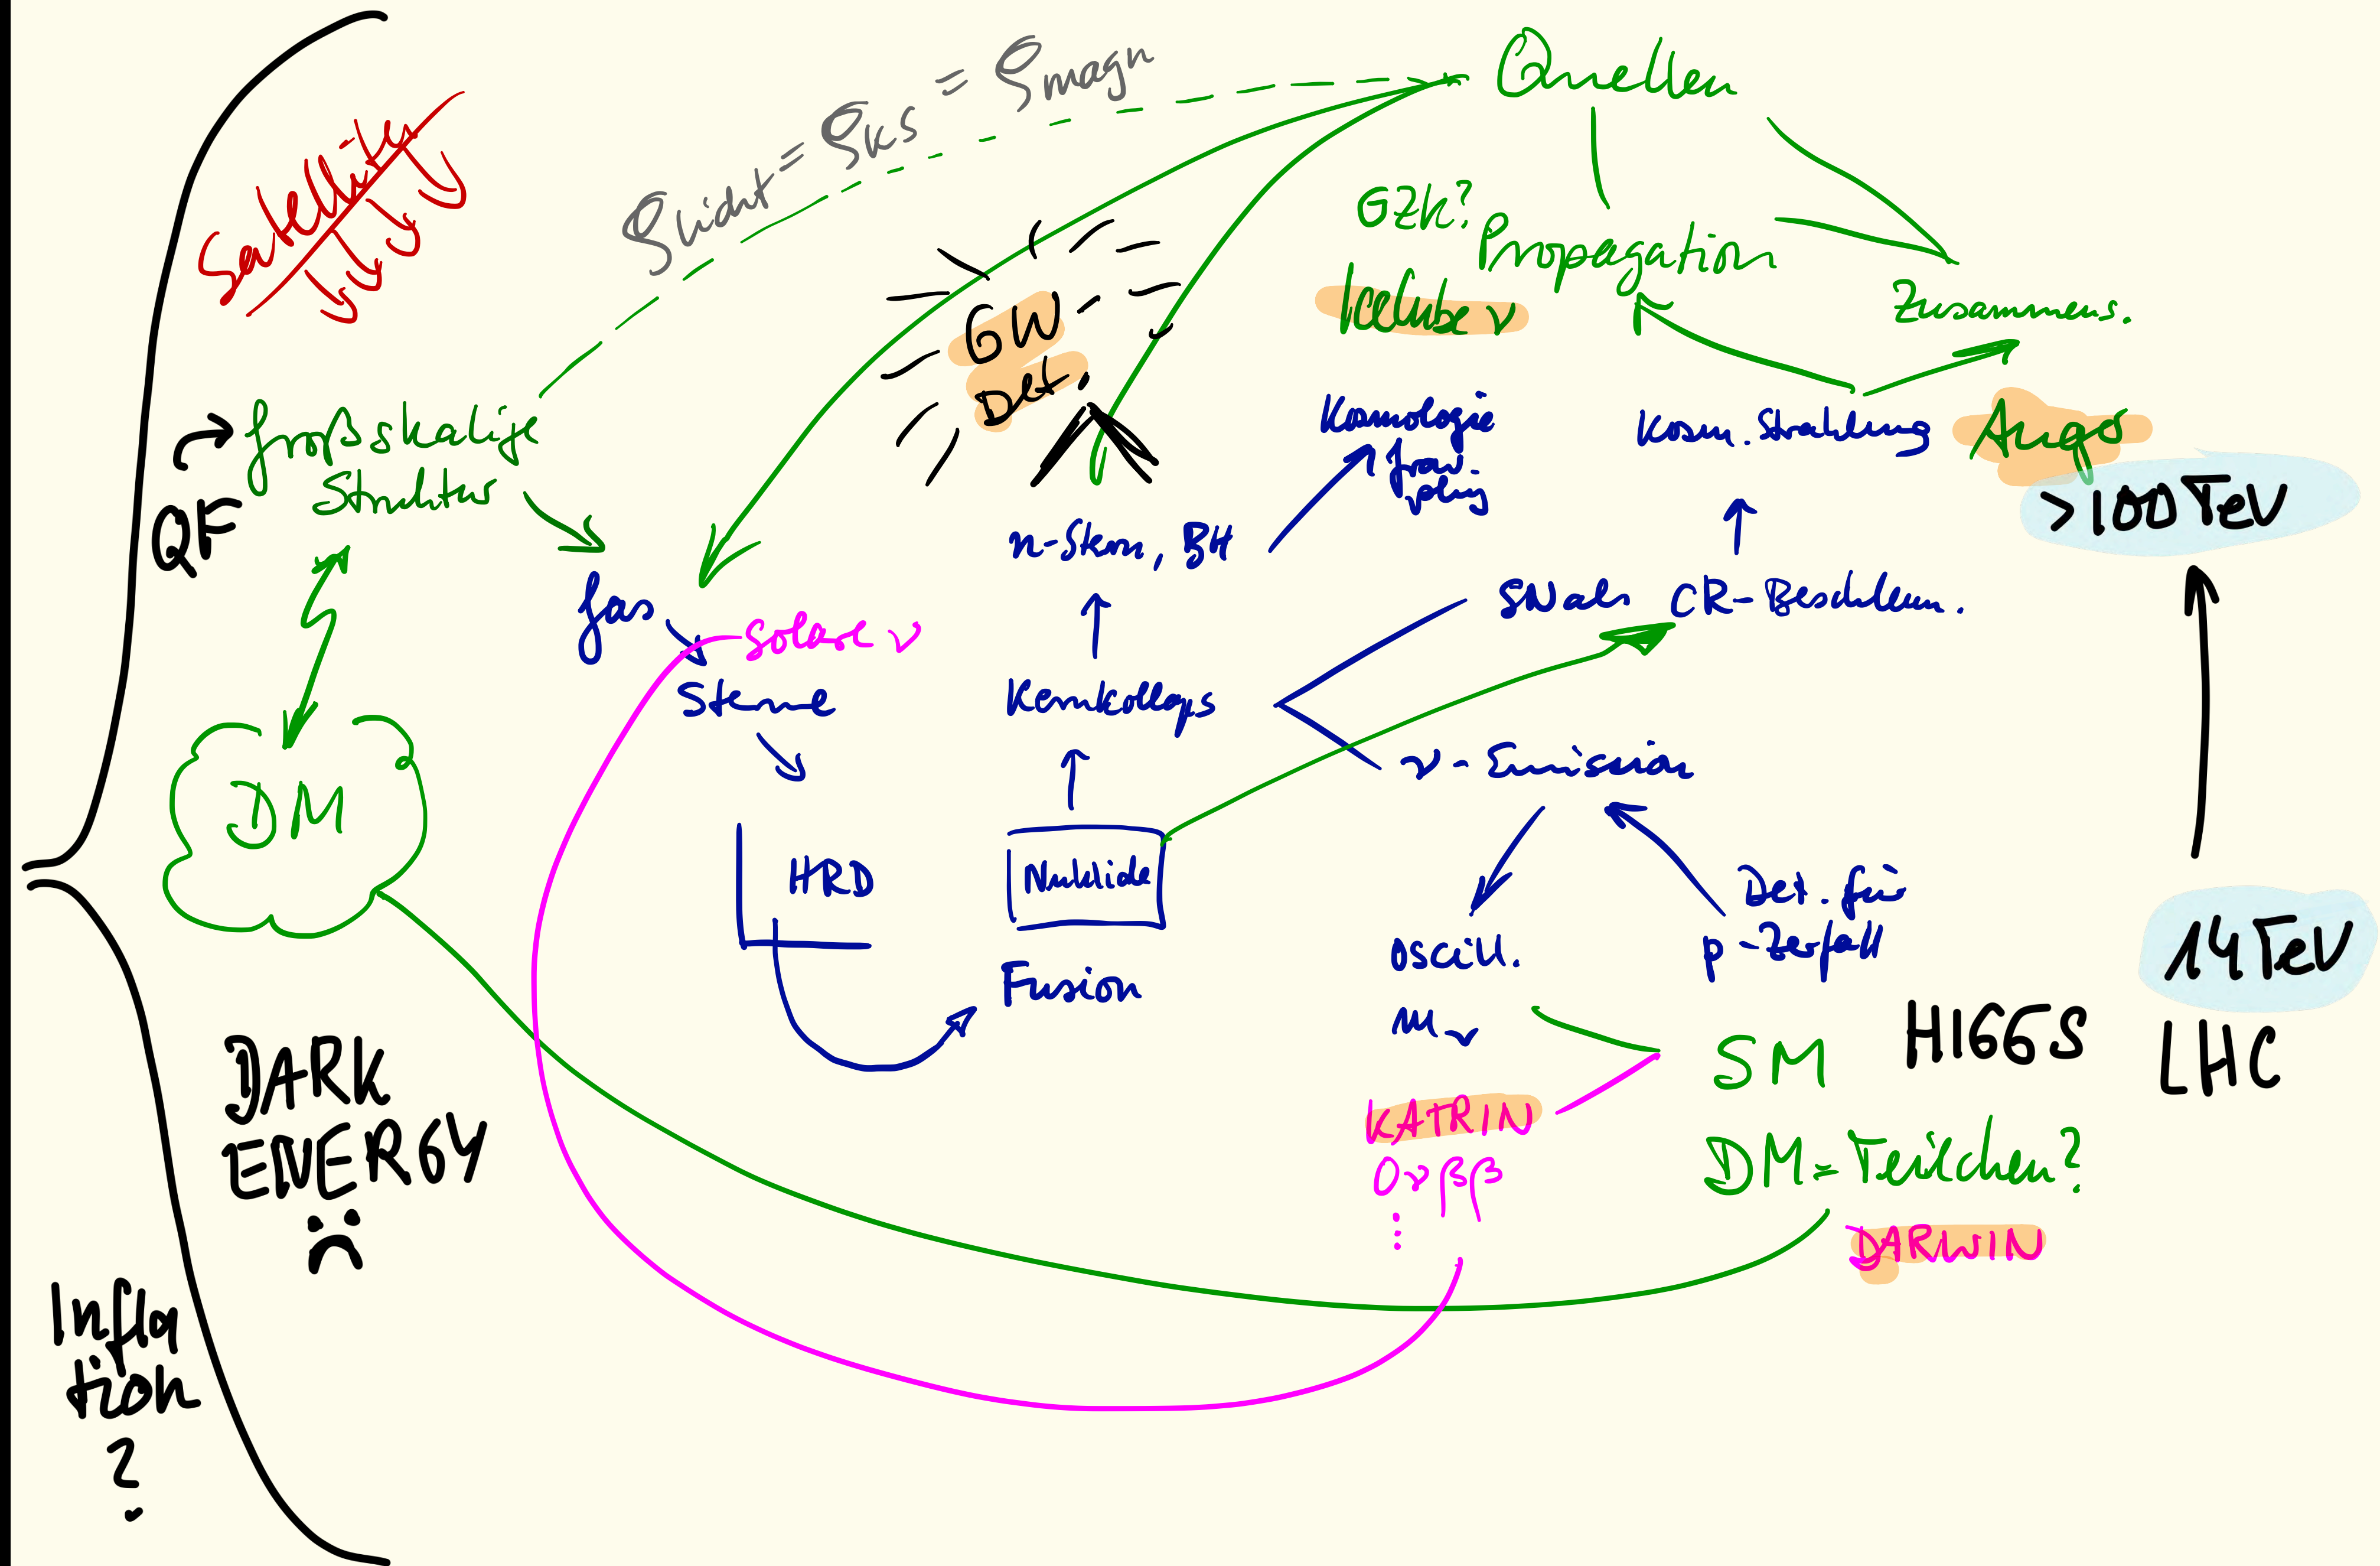 Quellen
ρLicht = ρKS = ρmagn
Satellity
GZK?
Propagation
IceCube ν
Zusammens.
GW
Det.
großskalige
Struktur
QF
Kosmologie
grav.
Kosm. Strahlung
Auger
>100 TeV
n-Stern, BH
Gas
solare ν
SN als CR-Beschleun.
Sterne
Kernkollaps
ν-Emission
DM
HRD
Nuklide
Det. für
p-Zerfall
Oscill.
Fusion
mν
14 TeV
SM
HIGGS
LHC
DARK
ENERGY
KATRIN
0νββ
⋮
DM = Teilchen?
DARWIN
Infla
tion
?